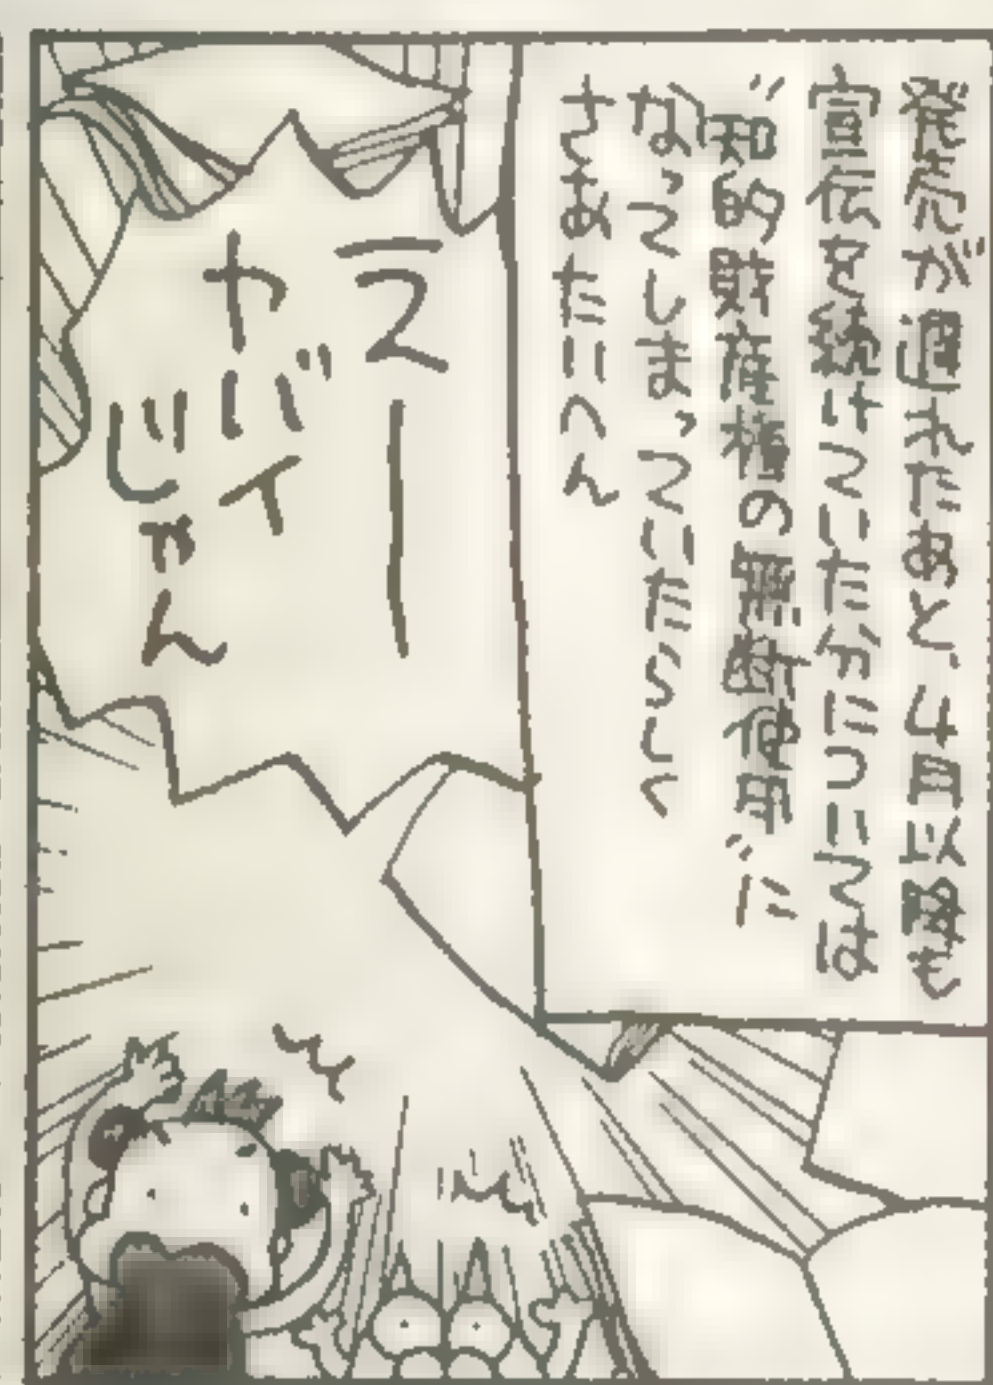 発売が遅れたあと、4月以降も
宣伝を続けていたかにつについては
〝知的財産権の無断使用〟に
なってしまっていたらしく
さあたいへん
えー
ヤバイ
じゃん